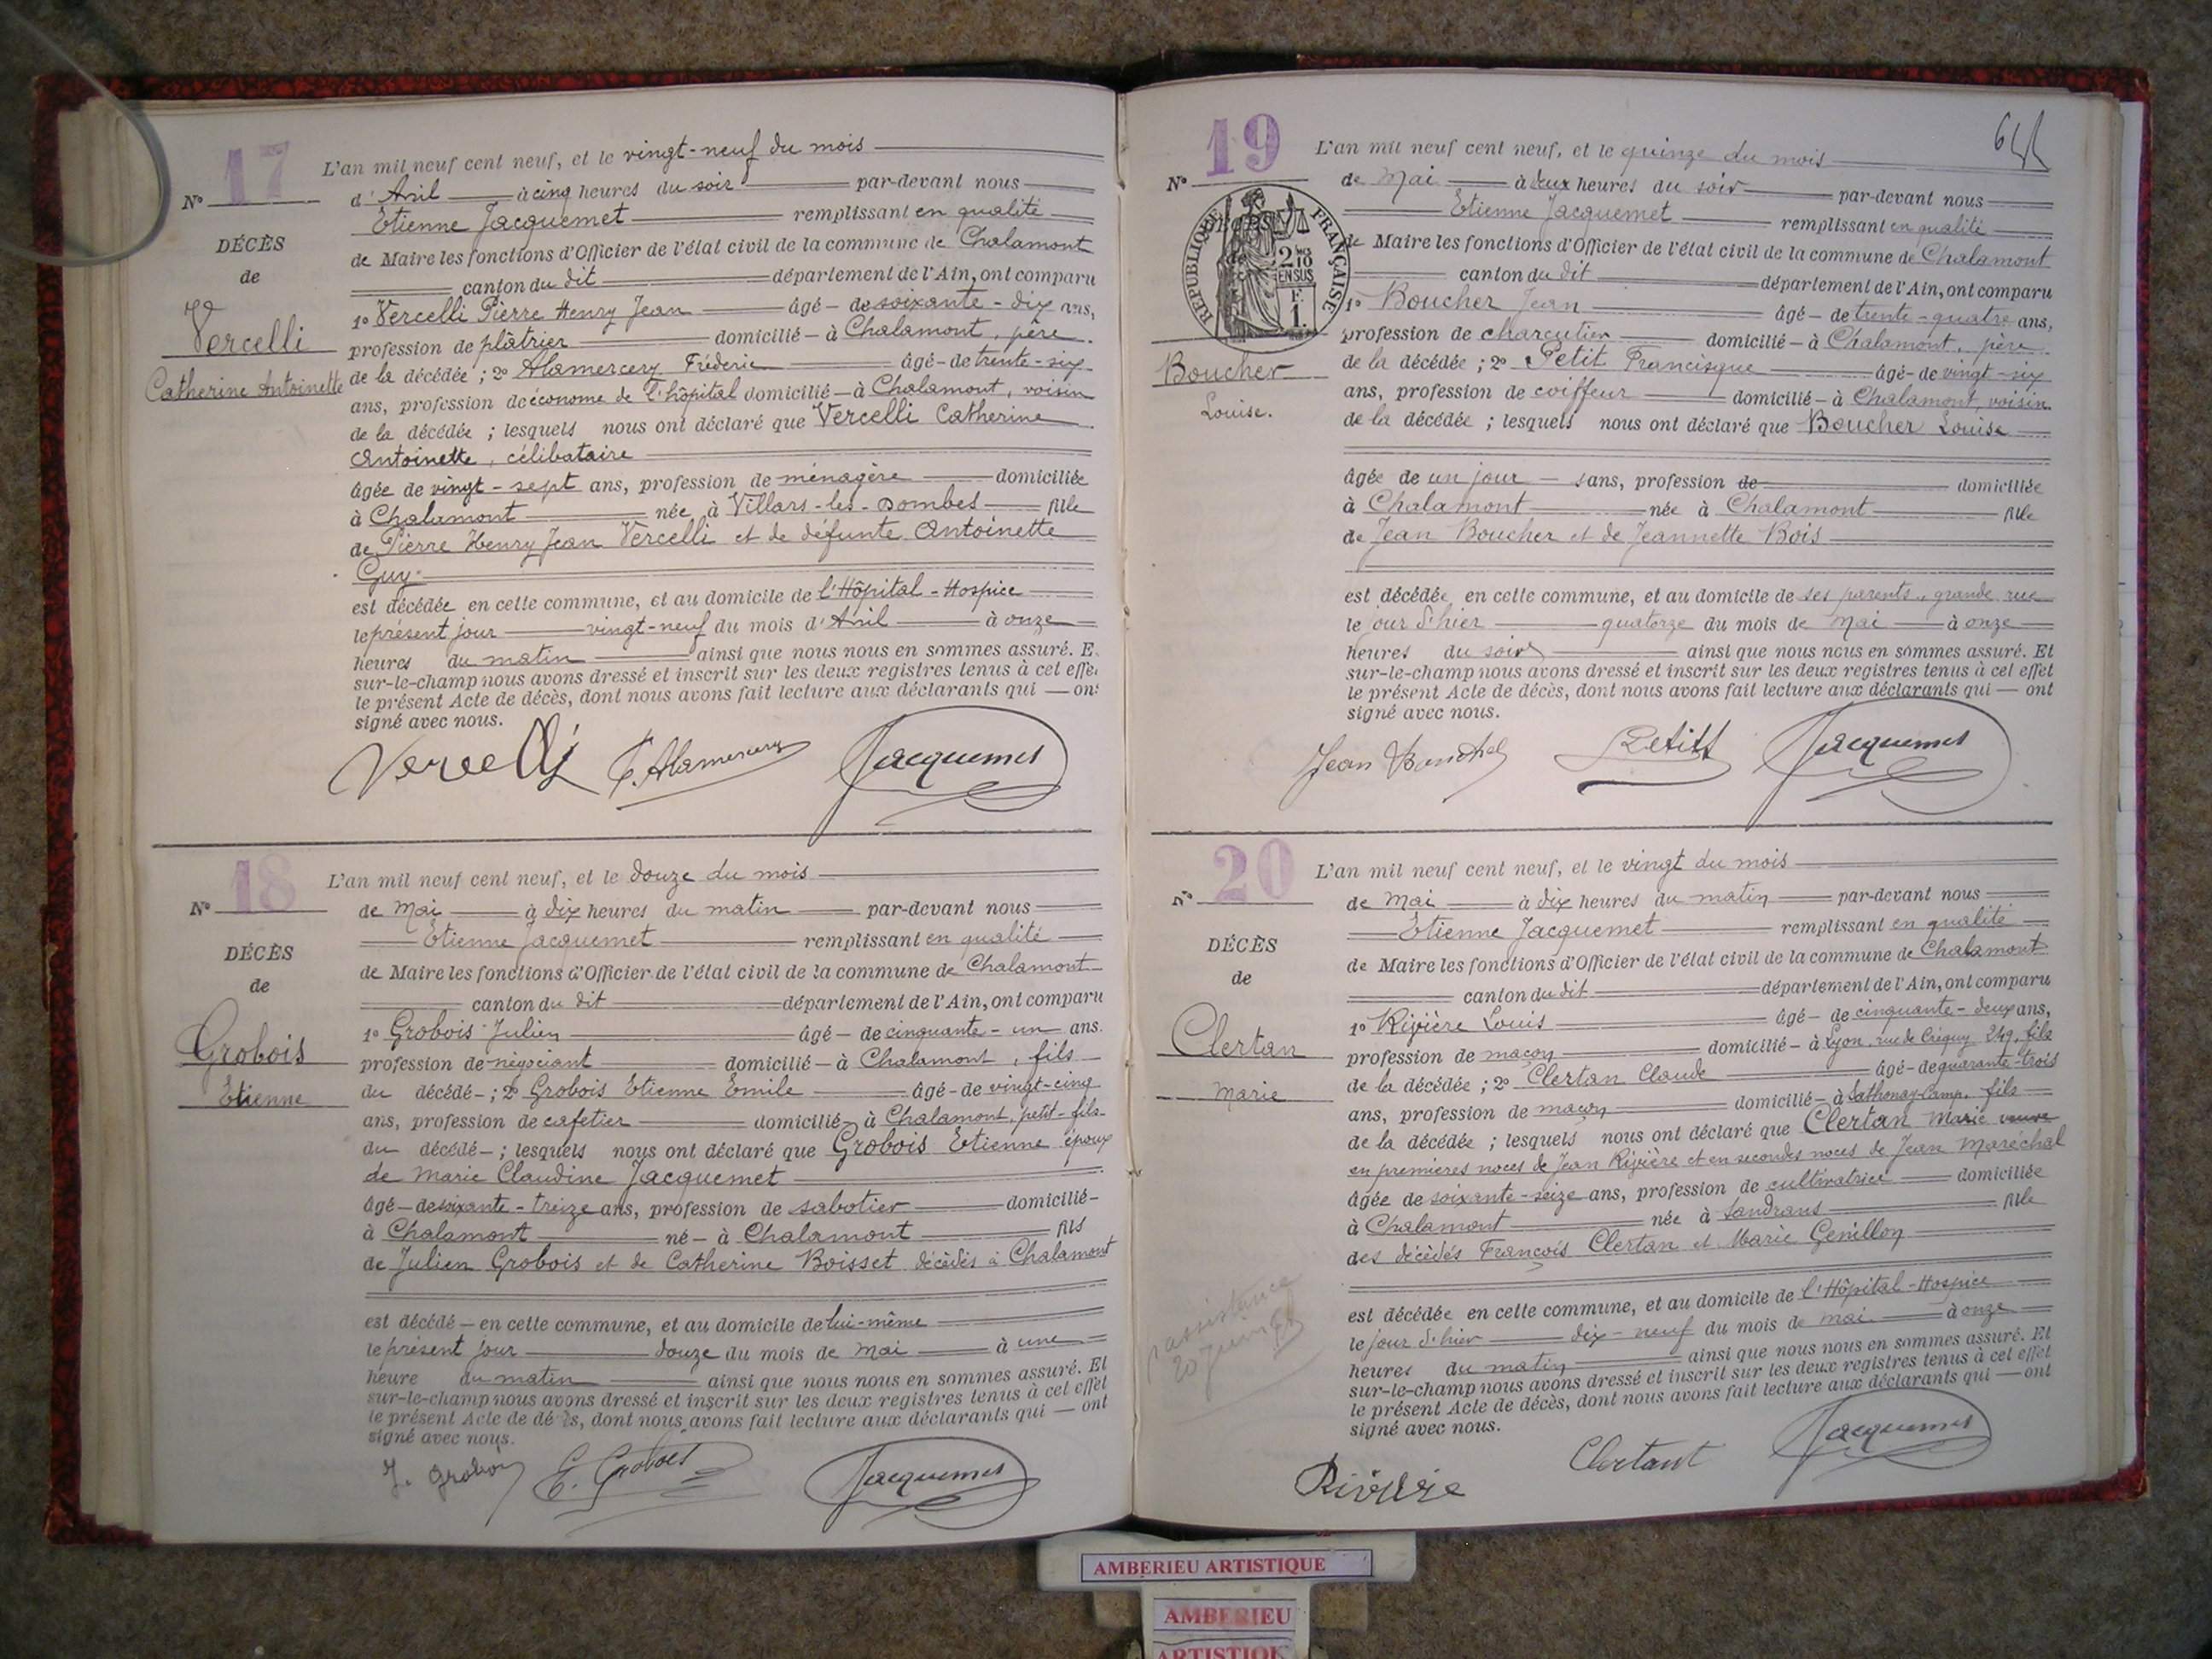 17
L'an mil neuf cent neuf, et le vingt-neuf du mois
N°
d'Avril à cinq heures du soir par-devant nous
Etienne Jacquemet remplissant en qualité
DÉCÈS
de Maire les fonctions d'Officier de l'état civil de la commune de Chalamont
de
canton du dit département de l'Ain, ont comparu
1° Vercelli Pierre Henry Jean âgé de soixante-dix ans,
Vercelli
profession de plâtrier domicilié à Chalamont, père
Catherine Antoinette
de la décédée ; 2° Alamercery Fréderic âgé de trente-six
ans, profession de économe de l'hôpital domicilié à Chalamont, voisin
de la décédée ; lesquels nous ont déclaré que Vercelli Catherine
Antoinette, célibataire
âgée de vingt-sept ans, profession de ménagère domiciliée
à Chalamont née à Villars-les-Dombes fille
de Pierre Henry Jean Vercelli et de défunte Antoinette
Guy
est décédée en cette commune, et au domicile de l'Hôpital-Hospice
le présent jour vingt-neuf du mois d'Avril à onze
heures du matin ainsi que nous nous en sommes assuré. E
sur-le-champ nous avons dressé et inscrit sur les deux registres tenus à cet effe
le présent Acte de décès, dont nous avons fait lecture aux déclarants qui — ont
signé avec nous.
Vercelli F. Alamercery Jacquemet
18
L'an mil neuf cent neuf, et le douze du mois
N°
de Mai à dix heures du matin par-devant nous
Etienne Jacquemet remplissant en qualité
DÉCÈS
de Maire les fonctions d'Officier de l'état civil de la commune de Chalamont
de
canton du dit département de l'Ain, ont comparu
1° Grobois Julien âgé de cinquante-un ans.
Grobois
profession de négociant domicilié à Chalamont, fils
Etienne
du décédé ; 2° Grobois Etienne Emile âgé de vingt-cinq
ans, profession de cafetier domicilié à Chalamont, petit-fils
du décédé ; lesquels nous ont déclaré que Grobois Etienne époux
de Marie Claudine Jacquemet
âgé de soixante-treize ans, profession de sabotier domicilié
à Chalamont né à Chalamont fils
de Julien Grobois et de Catherine Boisset décédés à Chalamont
est décédé en cette commune, et au domicile de lui-même
le présent jour douze du mois de Mai à une
heure du matin ainsi que nous nous en sommes assuré. Et
sur-le-champ nous avons dressé et inscrit sur les deux registres tenus à cet effet
le présent Acte de décès, dont nous avons fait lecture aux déclarants qui — ont
signé avec nous.
J. Grobois E. Grobois Jacquemet
19
L'an mil neuf cent neuf, et le quinze du mois
N°
de Mai à deux heures du soir par-devant nous
Etienne Jacquemet remplissant en qualité
RÉPUBLIQUE FRANÇAISE
2/10 EN SUS
de Maire les fonctions d'Officier de l'état civil de la commune de Chalamont
canton du dit département de l'Ain, ont comparu
1° Boucher Jean âgé de trente-quatre ans,
profession de charcutier domicilié à Chalamont, père
Boucher
de la décédée ; 2° Petit Francisque âgé de vingt-six
Louise.
ans, profession de coiffeur domicilié à Chalamont, voisin
de la décédée ; lesquels nous ont déclaré que Boucher Louise
âgée de un jour — sans, profession de domiciliée
à Chalamont née à Chalamont fille
de Jean Boucher et de Jeannette Bois
est décédée en cette commune, et au domicile de ses parents, grande rue
le jour d'hier quatorze du mois de Mai à onze
heures du soir ainsi que nous nous en sommes assuré. Et
sur-le-champ nous avons dressé et inscrit sur les deux registres tenus à cet effet
le présent Acte de décès, dont nous avons fait lecture aux déclarants qui — ont
signé avec nous.
Jean Bouchet Petit Jacquemet
20
L'an mil neuf cent neuf, et le vingt du mois
N°
de Mai à dix heures du matin par-devant nous
Etienne Jacquemet remplissant en qualité
DÉCÈS
de Maire les fonctions d'Officier de l'état civil de la commune de Chalamont
de
canton du dit département de l'Ain, ont comparu
1° Rivière Louis âgé de cinquante-deux ans,
Clertan
profession de maçon domicilié à Lyon, rue de Créquy 249, fils
Marie
de la décédée ; 2° Clertan Claude âgé de quarante-trois
ans, profession de maçon domicilié à Sathonay-Camp, fils
de la décédée ; lesquels nous ont déclaré que Clertan Marie veuve
en premières noces de Jean Rivière et en secondes noces de Jean Maréchal
âgée de soixante-seize ans, profession de cultivatrice domiciliée
à Chalamont née à Sandrans fille
des décédés François Clertan et Marie Genillon
est décédée en cette commune, et au domicile de l'Hôpital-Hospice
le jour d'hier dix-neuf du mois de mai à onze
heures du matin ainsi que nous nous en sommes assuré. Et
sur-le-champ nous avons dressé et inscrit sur les deux registres tenus à cet effet
le présent Acte de décès, dont nous avons fait lecture aux déclarants qui — ont
signé avec nous.
assistance
20 juin
Rivière Clertant Jacquemet
AMBERIEU ARTISTIQUE
AMBERIEU
ARTISTIQUE